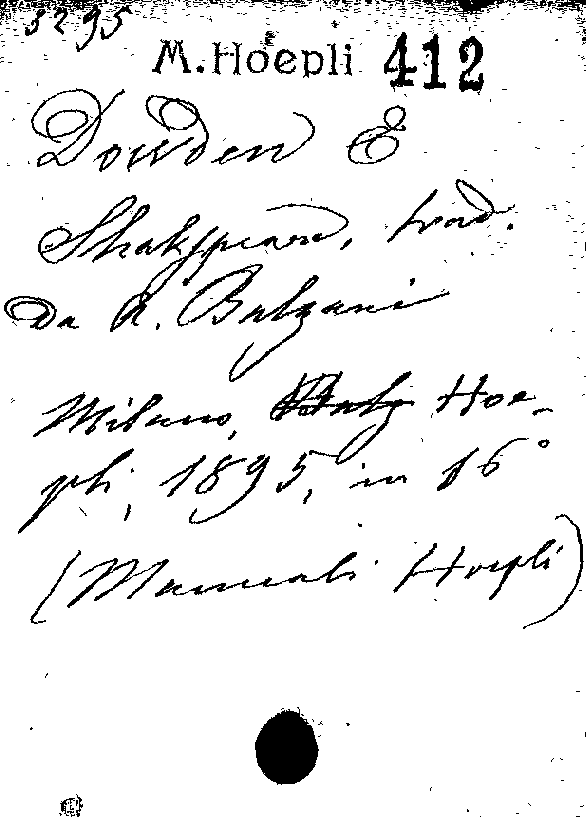 3295
M. Hoepli 412
Dowden E
Shakspeare, trad.
da A. Balzani
Milano, Hoe-
pli, 1895, in 16°
(Manuali Hoepli)